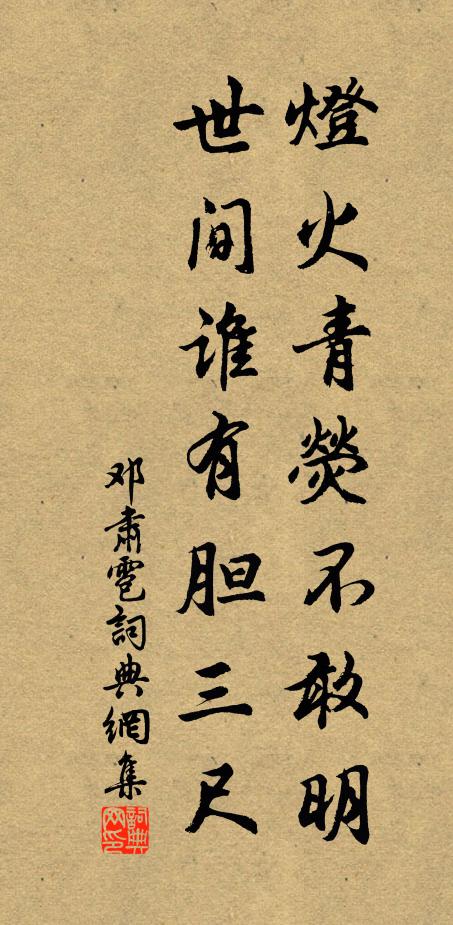 燈火青熒不敢明
世间谁有胆三尺
邓肅雹詞典網集
詞典网印